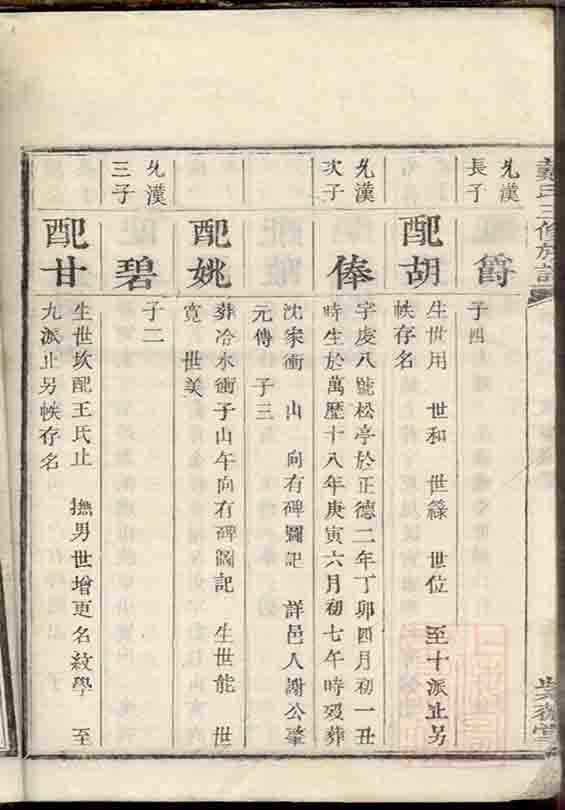 兂漢
長子
爵
子四
配胡
生世用 世和 世籙 世位 至十派止另
帙存名
兂漢
次子
俸
字虔八號松亭於正德二年丁卯四月初一丑
時生於萬歷十八年庚寅六月初七午時歿葬
沈家衝 山 向有碑圖記 詳邑人謝公肇
元傳 子三
配姚
葬冷水衝子山午向有碑圖記 生世能 世
寛 世美
兂漢
三子
碧
子二
配甘
生世坎配王氏止 撫男世增更名紋學 至
九派止另帙存名
氏三修族譜